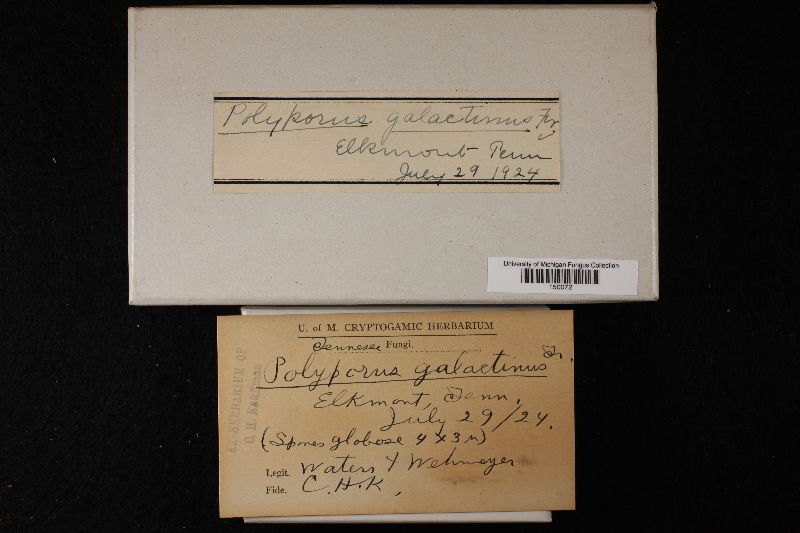 Polyporus galactinus Fr.
Elkmont Tenn
July 29 1924
University of Michigan Fungus Collection
150072
U. of M. CRYPTOGAMIC HERBARIUM
Tennesee Fungi.
Polyporus galactinus Fr.
Elkmont, Tenn.
July 29/24.
(Spores globose 4 x 3 µ)
Legit. Waters & Wehmeyer
Fide. C.H.K,
EX HERBARIUM OF
C. H.